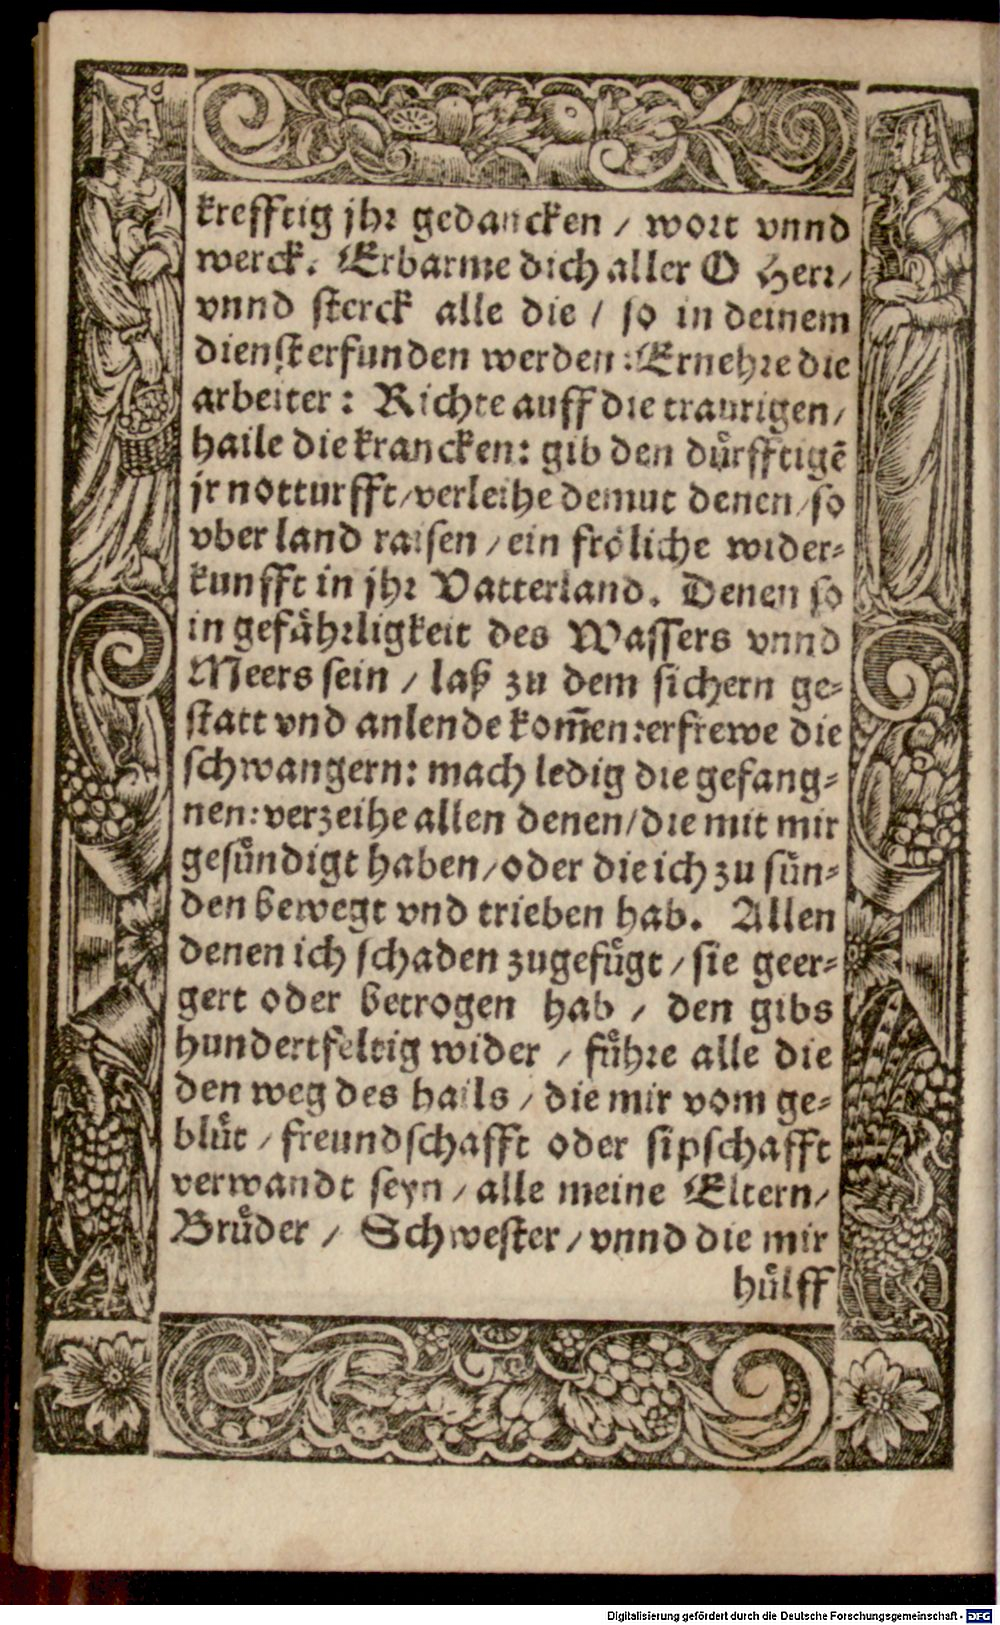 krefftig jhr gedancken / wort vnnd
werck. Erbarme dich aller O Herr/
vnnd sterck alle die / so in deinem
dienst erfunden werden: Ernehre die
arbeiter: Richte auff die traurigen/
haile die krancken: gib den dürfftigẽ
jr notturfft/verleihe demut denen/so
vber land raisen / ein fröliche wider-
kunfft in jhr Vatterland. Denen so
in gefährligkeit des Wassers vnnd
Meers sein / laß zu dem sichern ge-
statt vnd anlende kom̃en: erfrewe die
schwangern: mach ledig die gefang-
nen: verzeihe allen denen/die mit mir
gesündigt haben/oder die ich zu sün-
den bewegt vnd trieben hab. Allen
denen ich schaden zugefügt / sie geer-
gert oder betrogen hab / den gibs
hundertfeltig wider / führe alle die
den weg des hails / die mir vom ge-
blüt / freundschafft oder sipschafft
verwandt seyn / alle meine Eltern/
Brüder / Schwester / vnnd die mir
hülff
Digitalisierung gefördert durch die Deutsche Forschungsgemeinschaft - DFG